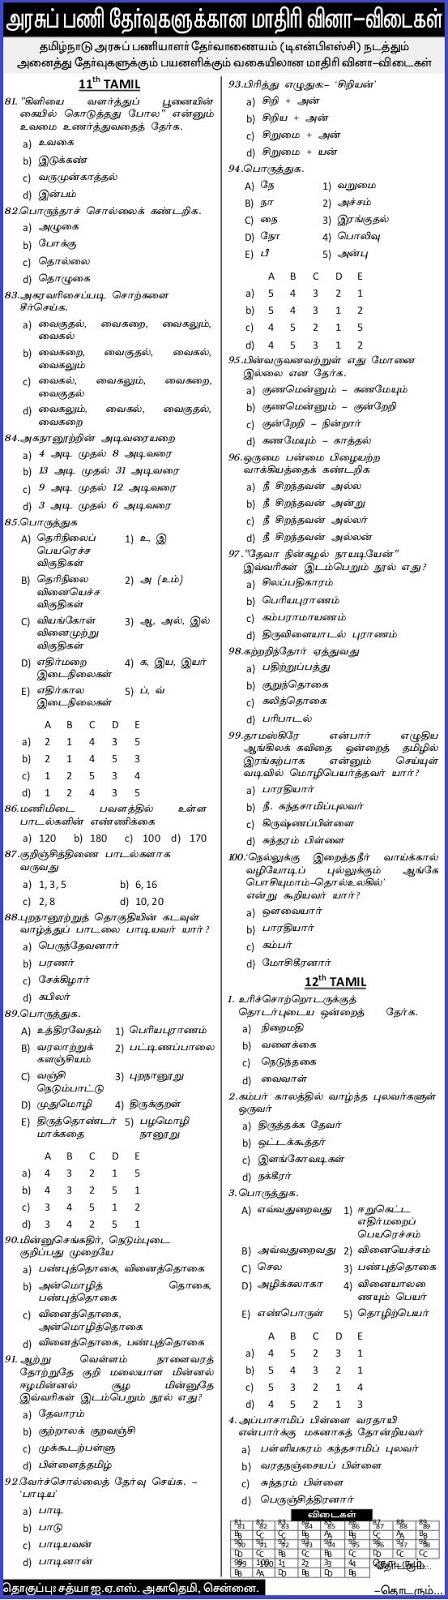 அரசுப் பணி தேர்வுகளுக்கான மாதிரி வினா–விடைகள்
தமிழ்நாடு அரசுப் பணியாளர் தேர்வாணையம் (டிஎன்பிஎஸ்சி) நடத்தும்
அனைத்து தேர்வுகளுக்கும் பயனளிக்கும் வகையிலான மாதிரி வினா–விடைகள்
11th TAMIL
81. "கிளியை வளர்த்துப் பூனையின்
கையில் கொடுத்தது போல" என்னும்
உவமை உணர்த்துவதைத் தேர்க.
a) உவகை
b) இடுக்கண்
c) வருமுன்காத்தல்
d) இன்பம்
82.பொருந்தாச் சொல்லைக் கண்டறிக.
a) அழுகை
b) போக்கு
c) தொல்லை
d) தொழுகை
83.அகரவரிசைப்படி சொற்களை
சீர்செய்க.
a) வைகுதல், வைகறை, வைகலும்,
வைகல்
b) வைகறை, வைகுதல், வைகல்,
வைகலும்
c) வைகல், வைகலும், வைகறை,
வைகுதல்
d) வைகலும், வைகல், வைகுதல்,
வைகறை
84.அகநானூற்றின் அடிவரையறை
a) 4 அடி முதல் 8 அடிவரை
b) 13 அடி முதல் 31 அடிவரை
c) 9 அடி முதல் 12 அடிவரை
d) 3 அடி முதல் 6 அடிவரை
85.பொருத்துக
A) தெரிநிலைப் பெயரெச்ச விகுதிகள் 1) உ, இ
B) தெரிநிலை வினையெச்ச விகுதிகள் 2) அ (உம்)
C) வியங்கோள் வினைமுற்று விகுதிகள் 3) ஆ, அல், இல்
D) எதிர்மறை இடைநிலைகள் 4) க, இய, இயர்
E) எதிர்கால இடைநிலைகள் 5) ப், வ்
A B C D E
a) 2 1 4 3 5
b) 2 1 4 5 3
c) 1 2 5 3 4
d) 1 2 4 3 5
86.மணிமிடை பவளத்தில் உள்ள
பாடல்களின் எண்ணிக்கை
a) 120 b) 180 c) 100 d) 170
87.குறிஞ்சித்திணை பாடல்களாக
வருவது
a) 1, 3, 5 b) 6, 16
c) 2, 8 d) 10, 20
88.புறநானூற்றுத் தொகுதியின் கடவுள்
வாழ்த்துப் பாடலை பாடியவர் யார்?
a) பெருந்தேவனார்
b) பரணர்
c) சேக்கிழார்
d) கபிலர்
89.பொருத்துக.
A) உத்திரவேதம் 1) பெரியபுராணம்
B) வரலாற்றுக் களஞ்சியம் 2) பட்டிணப்பாலை
C) வஞ்சி நெடும்பாட்டு 3) புறநானூறு
D) முதுமொழி 4) திருக்குறள்
E) திருத்தொண்டர் மாக்கதை 5) பழமொழி நானூறு
A B C D E
a) 4 3 2 1 5
b) 4 3 2 5 1
c) 3 4 5 1 2
d) 3 4 2 5 1
90.மின்னுசெங்கதிர், நெடும்புடை
குறிப்பது முறையே
a) பண்புத்தொகை, வினைத்தொகை
b) அன்மொழித் தொகை,
பண்புத்தொகை
c) வினைத்தொகை,
அன்மொழித்தொகை
d) வினைத்தொகை, பண்புத்தொகை
91. ஆற்று வெள்ளம் நாளைவரத்
தோற்றுதே குறி மலையாள மின்னல்
ஈழமின்னல் சூழ மின்னுதே
இவ்வரிகள் இடம்பெறும் நூல் எது?
a) தேவாரம்
b) குற்றாலக் குறவஞ்சி
c) முக்கூடற்பள்ளு
d) பிள்ளைத்தமிழ்
92.வேர்ச்சொல்லைத் தேர்வு செய்க. –
'பாடிய'
a) பாடி
b) பாடு
c) பாடியவன்
d) பாடினான்
93.பிரித்து எழுதுக:– 'சிறியன்'
a) சிறி + அன்
b) சிறிய + அன்
c) சிறுமை + அன்
d) சிறுமை + யன்
94.பொருத்துக.
A) நே 1) வறுமை
B) நா 2) அச்சம்
C) நை 3) இரங்குதல்
D) நோ 4) பொலிவு
E) பீ 5) அன்பு
A B C D E
a) 5 4 3 2 1
b) 5 4 3 1 2
c) 4 5 2 1 5
d) 4 5 3 1 2
95.பின்வருவனவற்றுள் எது மோனை
இல்லை என தேர்க.
a) குணமென்னும் – கணமேயும்
b) குணமென்னும் – குன்றேறி
c) குன்றேறி – நின்றார்
d) கணமேயும் – காத்தல்
96.ஒருமை பன்மை பிழையற்ற
வாக்கியத்தைக் கண்டறிக
a) நீ சிறந்தவன் அல்ல
b) நீ சிறந்தவன் அன்று
c) நீ சிறந்தவன் அல்லர்
d) நீ சிறந்தவன் அல்லன்
97."தேவா நின்கழல் நாயடியேன்"
இவ்வரிகள் இடம்பெறும் நூல் எது?
a) சிலப்பதிகாரம்
b) பெரியபுராணம்
c) கம்பராமாயணம்
d) திருவிளையாடல் புராணம்
98.கற்றறிந்தோர் ஏத்துவது
a) பதிற்றுப்பத்து
b) குறுந்தொகை
c) கலித்தொகை
d) பரிபாடல்
99.தாமஸ்கிரே என்பார் எழுதிய
ஆங்கிலக் கவிதை ஒன்றைத் தமிழில்
இரங்கற்பாக என்னும் செய்யுள்
வடிவில் மொழிபெயர்த்தவர் யார்?
a) பாரதியார்
b) நீ. கந்தசாமிப்புலவர்
c) கிருஷ்ணப்பிள்ளை
d) சுந்தரம் பிள்ளை
100.'நெல்லுக்கு இறைத்தநீர் வாய்க்கால்
வழியோடிப் புல்லுக்கும் ஆங்கே
பொசியுமாம்–தொல்உலகில்'
என்று கூறியவர் யார்?
a) ஔவையார்
b) பாரதியார்
c) கம்பர்
d) மோசிகீரனார்
12th TAMIL
1. உரிச்சொற்றொடருக்குத்
தொடர்புடைய ஒன்றைத் தேர்க.
a) நிறைமதி
b) வளைக்கை
c) நெடுந்தகை
d) வைவாள்
2.கம்பர் காலத்தில் வாழ்ந்த புலவர்களுள்
ஒருவர்
a) திருத்தக்க தேவர்
b) ஒட்டக்கூத்தர்
c) இளங்கோவடிகள்
d) நக்கீரர்
3.பொருத்துக.
A) எவ்வதுறைவது 1) ஈறுகெட்ட எதிர்மறைப் பெயரெச்சம்
B) அவ்வதுறைவது 2) வினையெச்சம்
C) செல 3) பண்புத்தொகை
D) அழிக்கலாகா 4) வினையாலணையும் பெயர்
E) எண்பொருள் 5) தொழிற்பெயர்
A B C D E
a) 4 5 2 3 1
b) 5 4 3 2 1
c) 5 3 2 1 4
d) 4 5 2 1 3
4.அப்பாசாமிப் பிள்ளை வரதாயி
என்பார்க்கு மகனாகத் தோன்றியவர்
a) பள்ளியகரம் கந்தசாமிப் புலவர்
b) வரதநஞ்சையப் பிள்ளை
c) சுந்தரம் பிள்ளை
d) பெருஞ்சித்திரனார்
விடைகள்
தொகுப்பு: சத்யா ஐ.ஏ.எஸ். அகாதெமி, சென்னை.
–தொடரும்...